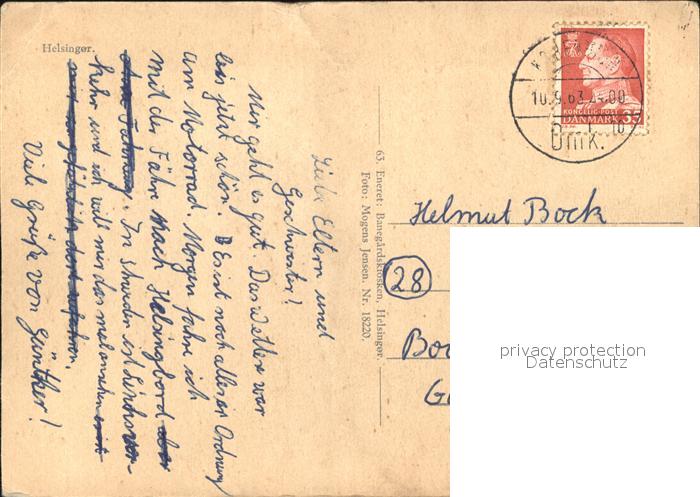 Helsingør.
Liebe Eltern und
Geschwister!
Mir geht es gut. Das Wetter war
bis jetzt schön. Es ist noch alles in Ordnung
am Motorrad. Morgen fahre ich
mit der Fähre nach Helsingborg
In Schweden ist Linksver-
kehr und ich will mir das mal ansehen
Viele Grüße von Günther!
63. Eneret: Banegårdskiosken, Helsingør.
Foto: Mogens Jensen. Nr. 18220.
10.9.63
KONGELIG POST
DANMARK 35
Omk.
Helmut Bock
28
privacy protection
Datenschutz